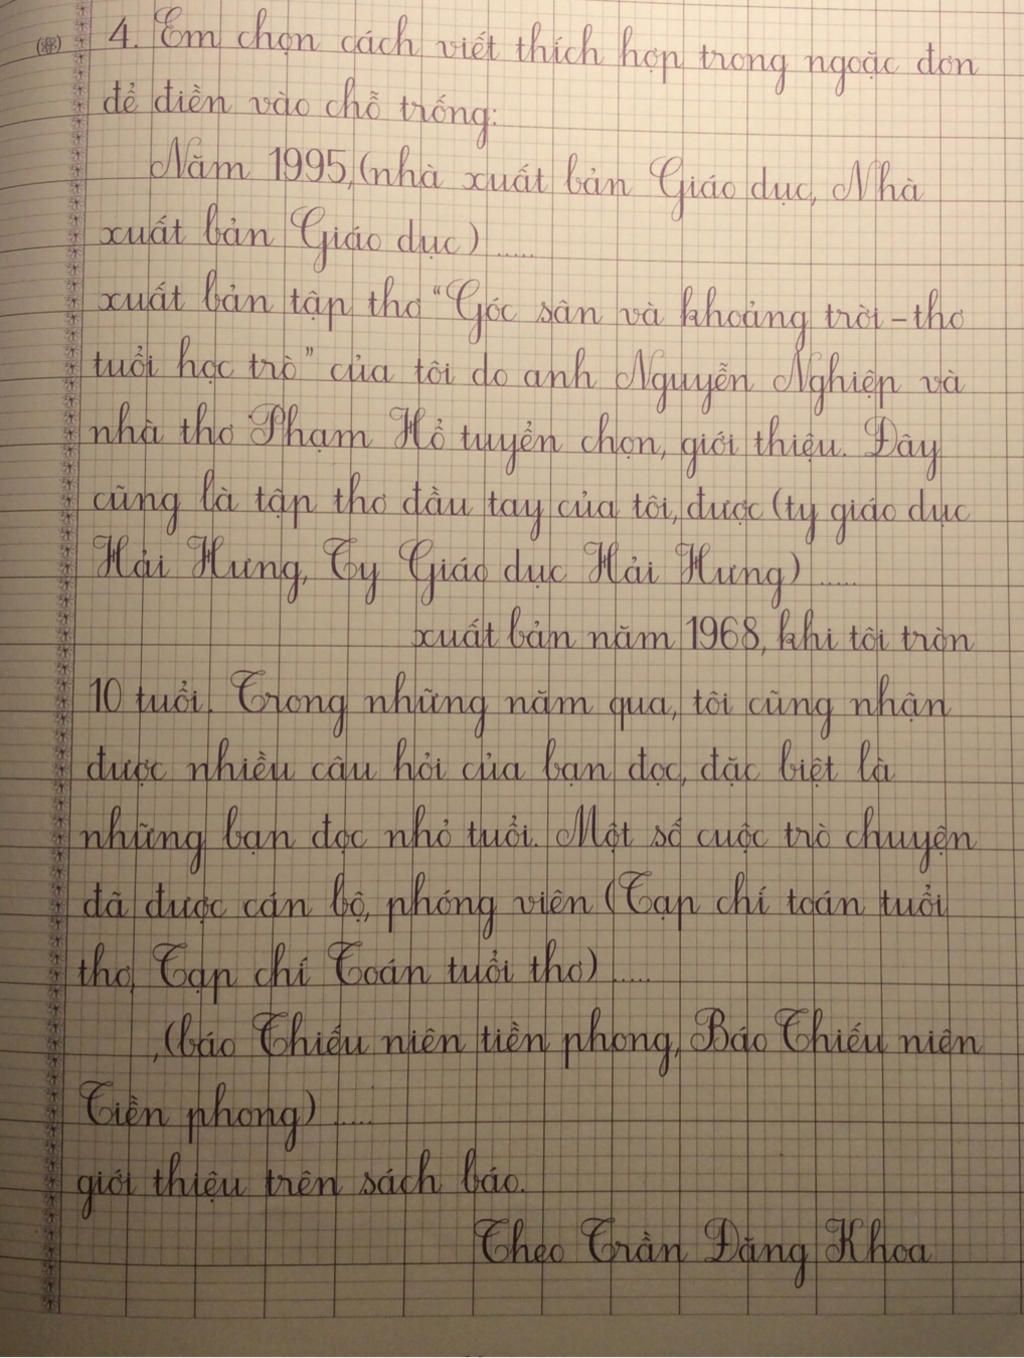 4. Em chọn cách viết thích hợp trong ngoặc đơn
để điền vào chỗ trống:
Năm 1995, (nhà xuất bản Giáo dục, Nhà
xuất bản Giáo dục) .....
xuất bản tập thơ "Góc sân và khoảng trời - thơ
tuổi học trò" của tôi do anh Nguyễn Nghiệp và
nhà thơ Phạm Hổ tuyển chọn, giới thiệu. Đây
cũng là tập thơ đầu tay của tôi, được (ty giáo dục
Hải Hưng, Ty Giáo dục Hải Hưng) .....
xuất bản năm 1968, khi tôi tròn
10 tuổi. Trong những năm qua, tôi cũng nhận
được nhiều câu hỏi của bạn đọc, đặc biệt là
những bạn đọc nhỏ tuổi. Một số cuộc trò chuyện
đã được cán bộ, phóng viên (Tạp chí toán tuổi
thơ, Tạp chí Toán tuổi thơ) .....
, (báo Thiếu niên tiền phong, Báo Thiếu niên
Tiền phong) .....
giới thiệu trên sách báo.
Theo Trần Đăng Khoa